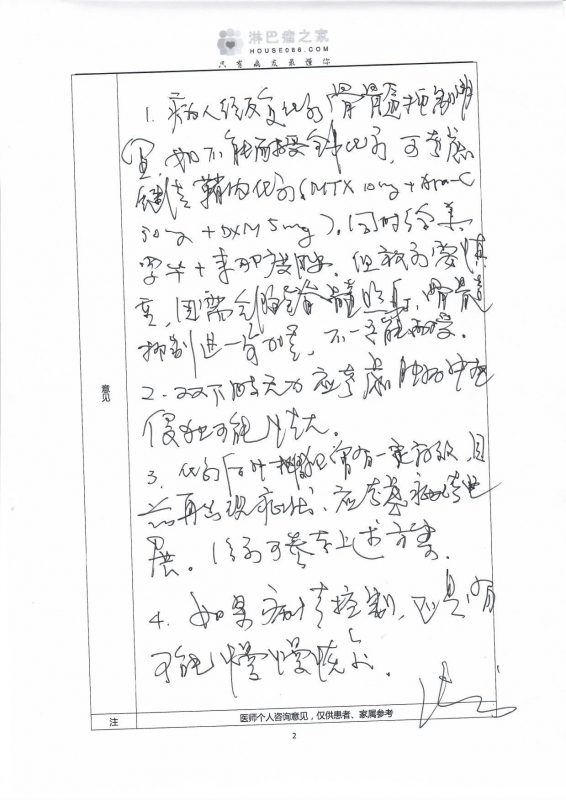 淋巴瘤之家
HOUSE086.COM
只有病友最懂你
意见
1. 病人经反复化疗骨髓抑制明
显,如不能耐受全身化疗,可考虑
鞘内化疗(MTX 10mg + Ara-C
50mg + DXM 5mg),同时给
+来那度胺.但
重,因需全脑全脊髓照射,骨髓
抑制进一步加重,不一定能耐受.
2. 双下肢无力应考虑肿瘤中枢
侵犯可能性大.
3. 化疗后 曾有一定疗效,目
前再出现症状,应考虑病情进
展。治疗可参考上述方案.
4. 如果病情控制,还是有
可能慢慢恢复.
注
医师个人咨询意见,仅供患者、家属参考
2